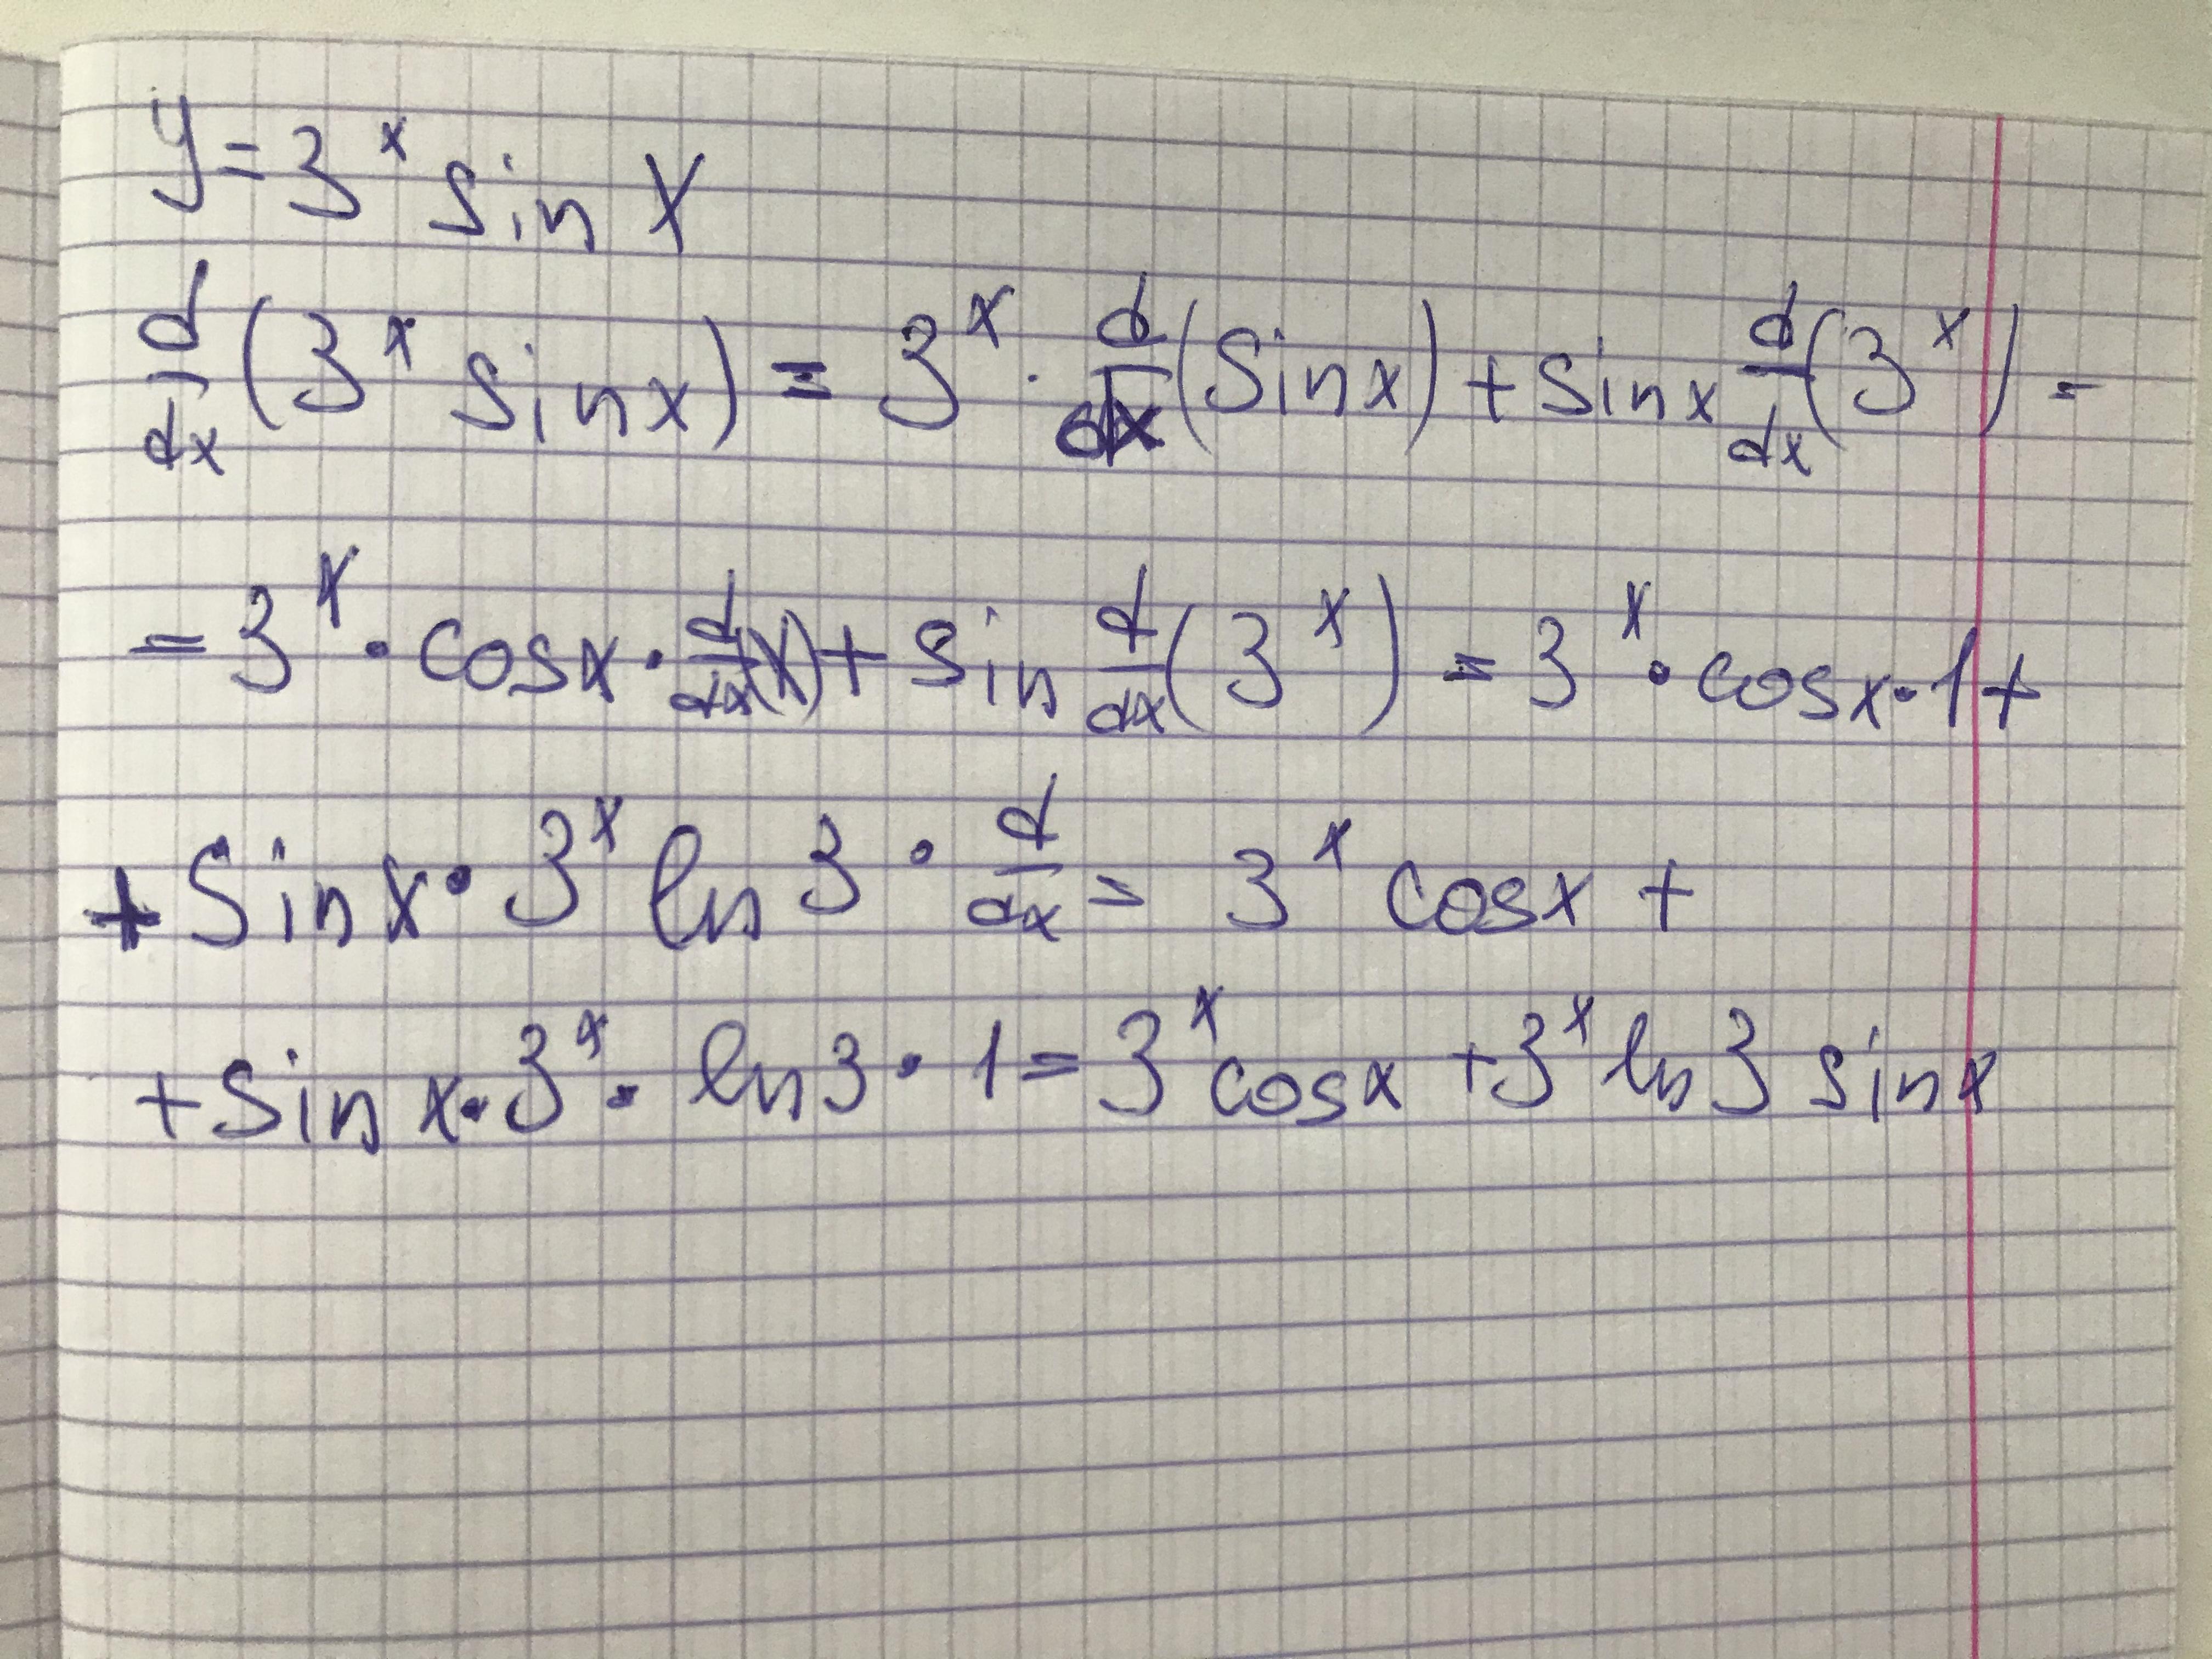 y = 3^x sin x
d/dx (3^x sin x) = 3^x · d/dx (sin x) + sin x d/dx (3^x) =
= 3^x · cos x · d/dx (x) + sin d/dx (3^x) = 3^x · cos x · 1 +
+ sin x · 3^x ln 3 · d/dx = 3^x cos x +
+ sin x · 3^x · ln 3 · 1 = 3^x cos x + 3^x ln 3 sin x